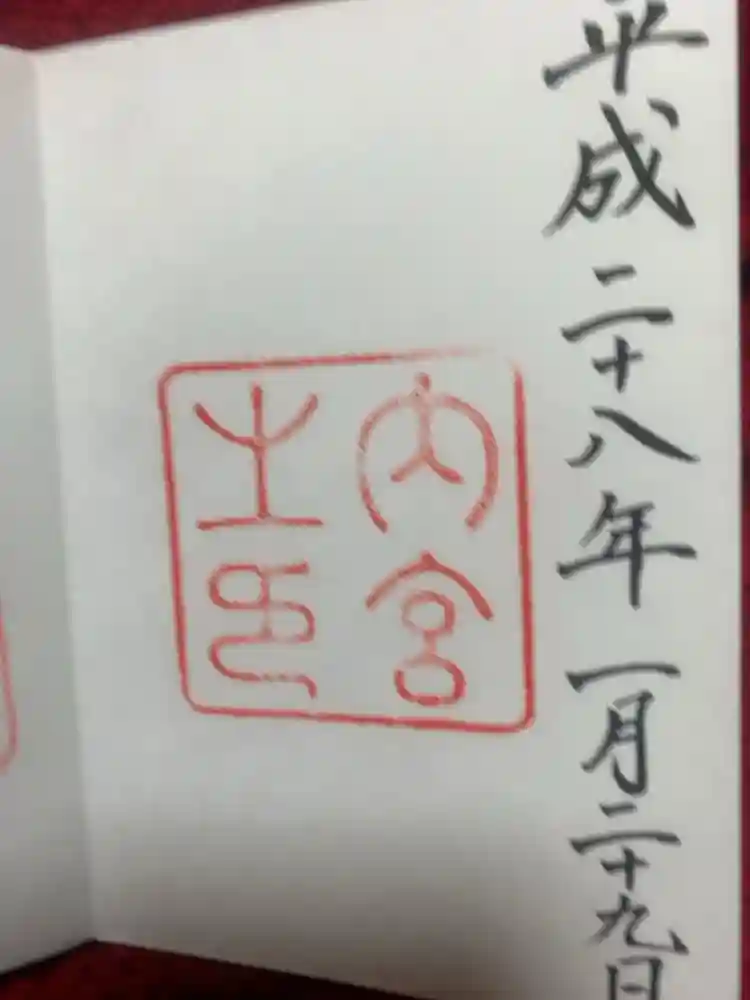 平成二十八年一月二十九日
内宮
之印